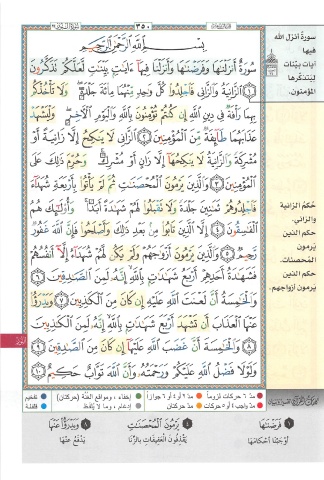 ٣٥٠
بِسْمِ اللَّهِ الرَّحْمَٰنِ الرَّحِيمِ
سُورَةٌ أَنزَلْنَاهَا وَفَرَضْنَاهَا وَأَنزَلْنَا فِيهَا آيَاتٍ بَيِّنَاتٍ لَّعَلَّكُمْ تَذَكَّرُونَ
١ الزَّانِيَةُ وَالزَّانِي فَاجْلِدُوا كُلَّ وَاحِدٍ مِّنْهُمَا مِائَةَ جَلْدَةٍ وَلَا تَأْخُذْكُم
بِهِمَا رَأْفَةٌ فِي دِينِ اللَّهِ إِن كُنتُمْ تُؤْمِنُونَ بِاللَّهِ وَالْيَوْمِ الْآخِرِ وَلْيَشْهَدْ
عَذَابَهُمَا طَائِفَةٌ مِّنَ الْمُؤْمِنِينَ ٢ الزَّانِي لَا يَنكِحُ إِلَّا زَانِيَةً أَوْ
مُشْرِكَةً وَالزَّانِيَةُ لَا يَنكِحُهَا إِلَّا زَانٍ أَوْ مُشْرِكٌ وَحُرِّمَ ذَٰلِكَ عَلَى
الْمُؤْمِنِينَ ٣ وَالَّذِينَ يَرْمُونَ الْمُحْصَنَاتِ ثُمَّ لَمْ يَأْتُوا بِأَرْبَعَةِ شُهَدَاءَ
فَاجْلِدُوهُمْ ثَمَانِينَ جَلْدَةً وَلَا تَقْبَلُوا لَهُمْ شَهَادَةً أَبَدًا وَأُولَٰئِكَ هُمُ
الْفَاسِقُونَ ٤ إِلَّا الَّذِينَ تَابُوا مِن بَعْدِ ذَٰلِكَ وَأَصْلَحُوا فَإِنَّ اللَّهَ غَفُورٌ
رَّحِيمٌ ٥ وَالَّذِينَ يَرْمُونَ أَزْوَاجَهُمْ وَلَمْ يَكُن لَّهُمْ شُهَدَاءُ إِلَّا أَنفُسُهُمْ
فَشَهَادَةُ أَحَدِهِمْ أَرْبَعُ شَهَادَاتٍ بِاللَّهِ إِنَّهُ لَمِنَ الصَّادِقِينَ ٦
وَالْخَامِسَةُ أَنَّ لَعْنَتَ اللَّهِ عَلَيْهِ إِن كَانَ مِنَ الْكَاذِبِينَ ٧ وَيَدْرَؤُا
عَنْهَا الْعَذَابَ أَن تَشْهَدَ أَرْبَعَ شَهَادَاتٍ بِاللَّهِ إِنَّهُ لَمِنَ الْكَاذِبِينَ
٨ وَالْخَامِسَةَ أَنَّ غَضَبَ اللَّهِ عَلَيْهَا إِن كَانَ مِنَ الصَّادِقِينَ ٩
وَلَوْلَا فَضْلُ اللَّهِ عَلَيْكُمْ وَرَحْمَتُهُ وَأَنَّ اللَّهَ تَوَّابٌ حَكِيمٌ ١٠
سورةٌ أنزل الله
فيها
آيات بيّنات
ليتذكّرها
المؤمنون.
حُكم الزانية
والزاني.
حكم الذين
يرمون
المحصنات.
حكم الذين
يرمون أزواجهم.
مدّ ٦ حركات لزوماً
مدّ ٢ أو ٤ أو ٦ جوازاً
إخفاء، ومواقع الغُنَّة (حركتان)
تفخيم
مدّ واجب ٤ أو ٥ حركات
مدّ حركتان
إدغام، وما لا يُلفظ
قلقلة
١ فَرَضْنَاهَا
أَوْجَبْنَا أَحْكَامَهَا
٤ يَرْمُونَ الْمُحْصَنَاتِ
يَقْذِفُونَ الْعَفِيفَاتِ بِالزِّنَا
٨ وَيَدْرَؤُا عَنْهَا
يَدْفَعُ عَنْهَا